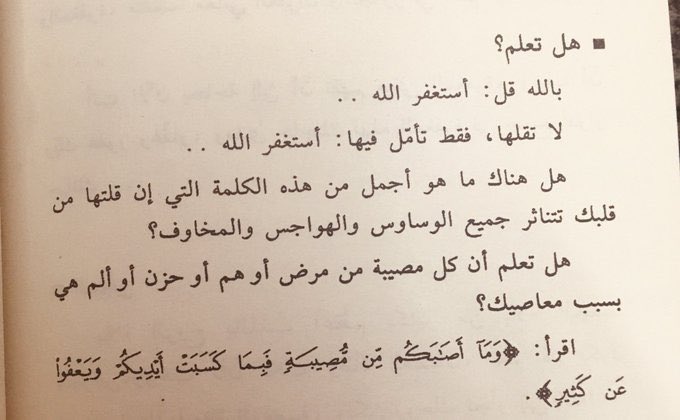 ■ هل تعلم؟
بالله قل: أستغفر الله . .
لا تقلها، فقط تأمّل فيها: أستغفر الله . .
هل هناك ما هو أجمل من هذه الكلمة التي إن قلتها من
قلبك تتناثر جميع الوساوس والهواجس والمخاوف؟
هل تعلم أن كل مصيبة من مرض أو هم أو حزن أو ألم هي
بسبب معاصيك؟
اقرأ: ﴿وَمَآ أَصَـٰبَكُم مِّن مُّصِيبَةٍ فَبِمَا كَسَبَتْ أَيْدِيكُمْ وَيَعْفُوا۟
عَن كَثِيرٍ﴾.